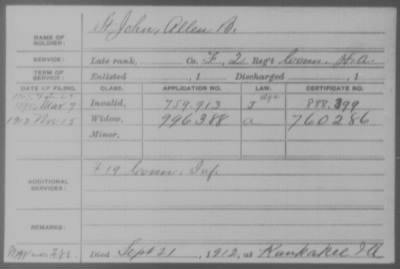 NAME OF SOLDIER: St John, Allen B.
SERVICE: Late rank, Co. F, 2 Reg't Conn. H.A.
TERM OF SERVICE: Enlisted , 1 Discharged , 1
DATE OF FILING. CLASS. APPLICATION NO. LAW. CERTIFICATE NO.
Mar 7 Invalid, 759.913 J 888.399
1912 Nov 15 Widow, 996388 a 760286
Minor,
ADDITIONAL SERVICES: F 19 Conn. Inf.
REMARKS:
Died Sept 21, 1912, at Kankakee Ill